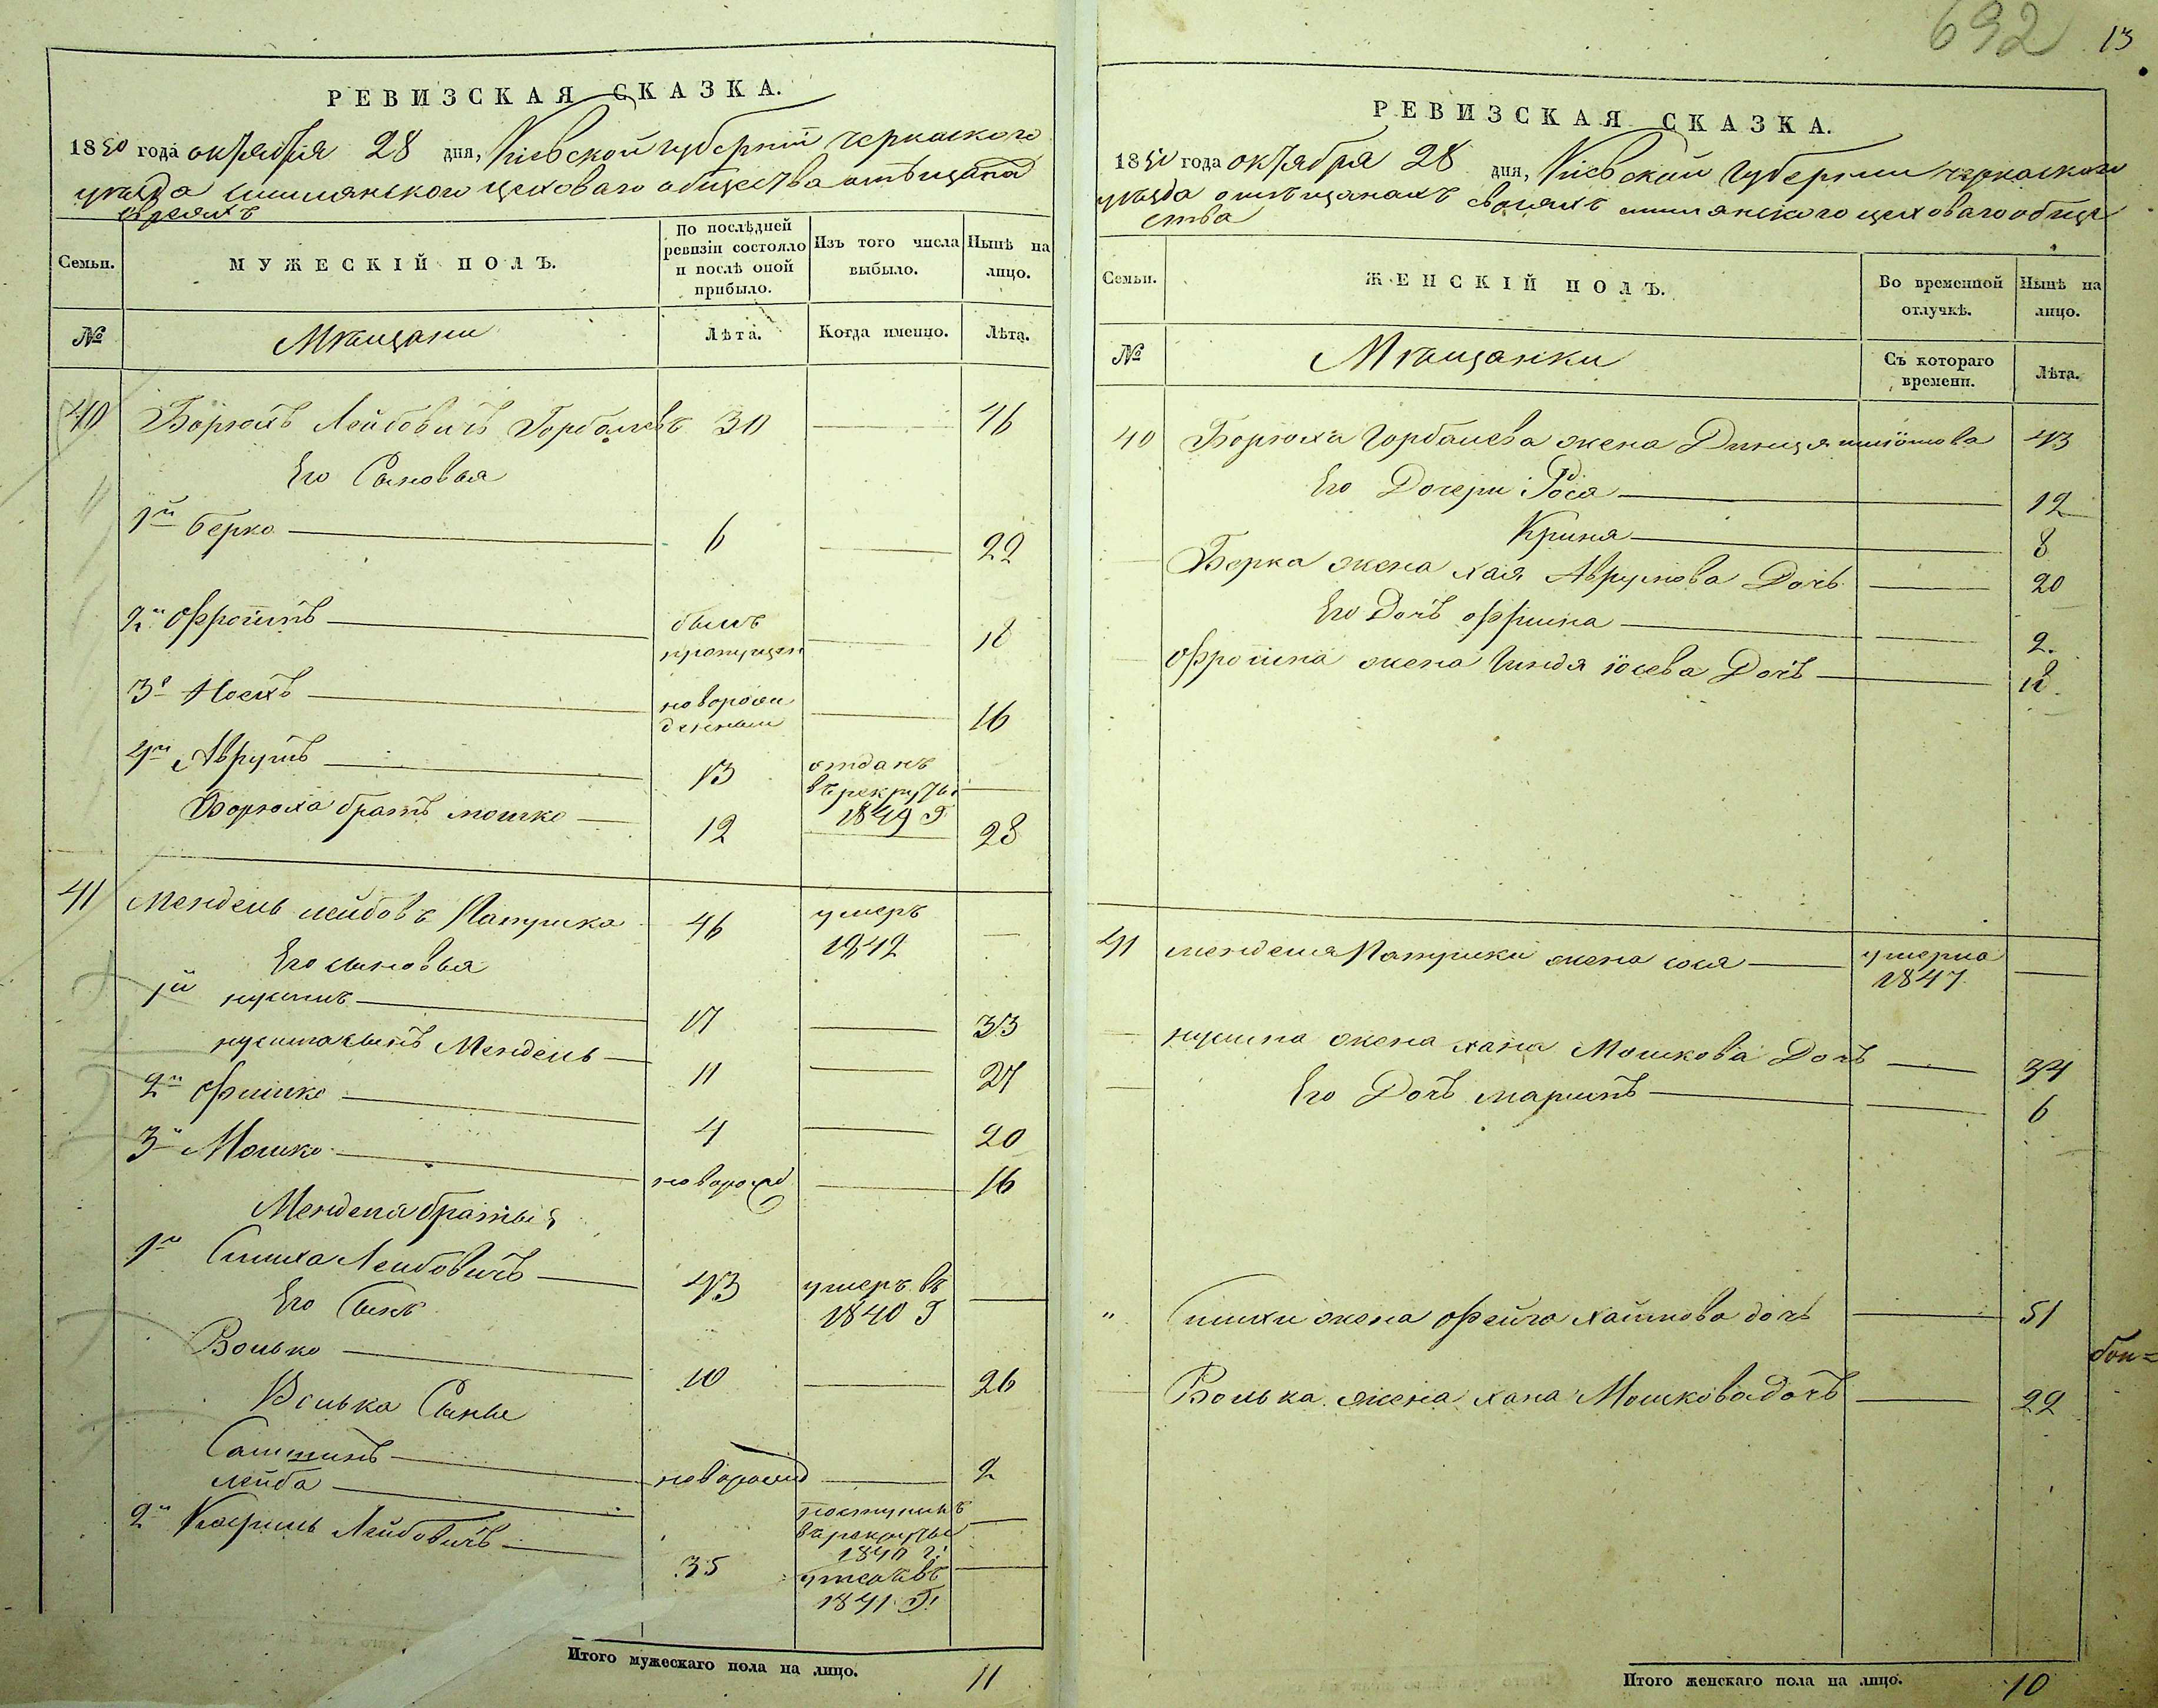 692 13
РЕВИЗСКАЯ СКАЗКА.
1850 года октября 28 дня, Кіевской губерніи черкаского
уезда шполянского цеховаго общества омѣщана
евреихъ
Семьи.
МУЖЕСКІЙ ПОЛЪ.
По послѣдней ревизіи состояло и послѣ оной прибыло.
Изъ того числа выбыло.
Нынѣ на лицо.
№
Мѣщани
Лѣта.
Когда именно.
Лѣта.
40 Борухъ Лейбовичъ Горбачевъ 30 46
Его Сыновья
1й Берко 6 22
2й Фроимъ былъ пропущен 18
3й Носихъ новорожденным 16
4й Аврумъ 13 отданъ въ рекруты 1849 г
Боруха братъ мошко 12 28
41 Мендель лейбовъ Патушка 46 умеръ 1842
Его сыновья
1й нусимъ 17 33
нусима сынъ Мендель 11 27
2й Фишко 4 20
3й Мошко новорожд 16
Менделя братья
1й Симха Лейбовичъ 43 умеръ въ 1840 г
Его Сынъ
Волько 10 26
Волька Сыны
новорожд 2
лейба поступилъ въ рекруты 1840 г.
2й Лейбовичъ 35 1841 г.
Итого мужескаго пола на лицо. 11
РЕВИЗСКАЯ СКАЗКА.
1850 года октября 28 дня, Кіевской губерніи черкаского
уезда омѣщанахъ евреихъ шполянского цеховаго обще
ства
Семьи.
ЖЕНСКІЙ ПОЛЪ.
Во временной отлучкѣ.
Нынѣ на лицо.
№
Мѣщанки
Съ котораго времени.
Лѣта.
40 Боруха Горбачева жена 43
Его Дочери Рося 12
Криня 8
Берка жена хая Аврумова Дочь 20
Его Дочь 2.
Фроима жена Гиндя Іосева Дочь 18
41 менделя Патушки жена умерла 1847
нусима жена хана Мошкова Дочь 34
Его Дочь 6
" Симхи жена Фейга хаимова дочь 51
Волька жена хана Мошкова дочь 22
Итого женскаго пола на лицо. 10